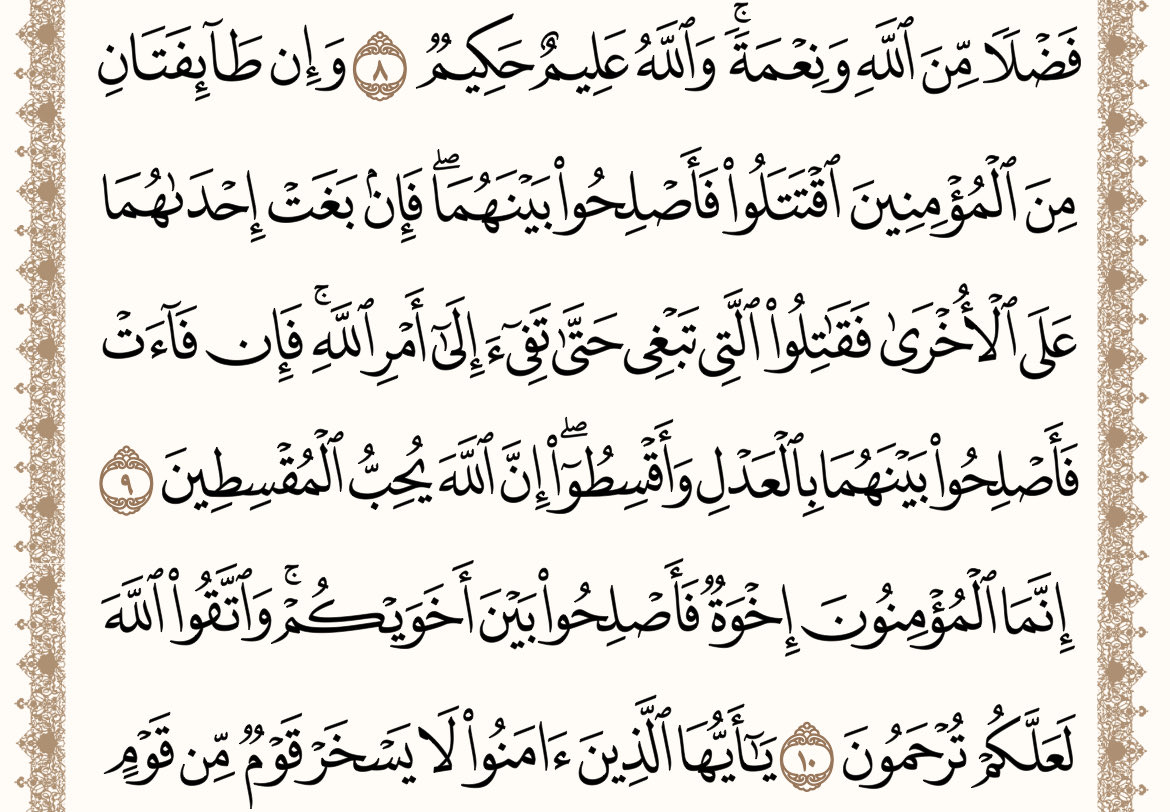 فَضۡلٗا مِّنَ ٱللَّهِ وَنِعۡمَةٗۚ وَٱللَّهُ عَلِيمٌ حَكِيمٞ ٨ وَإِن طَآئِفَتَانِ
مِنَ ٱلۡمُؤۡمِنِينَ ٱقۡتَتَلُواْ فَأَصۡلِحُواْ بَيۡنَهُمَاۖ فَإِنۢ بَغَتۡ إِحۡدَىٰهُمَا
عَلَى ٱلۡأُخۡرَىٰ فَقَٰتِلُواْ ٱلَّتِي تَبۡغِي حَتَّىٰ تَفِيٓءَ إِلَىٰٓ أَمۡرِ ٱللَّهِۚ فَإِن فَآءَتۡ
فَأَصۡلِحُواْ بَيۡنَهُمَا بِٱلۡعَدۡلِ وَأَقۡسِطُوٓاْۖ إِنَّ ٱللَّهَ يُحِبُّ ٱلۡمُقۡسِطِينَ ٩
إِنَّمَا ٱلۡمُؤۡمِنُونَ إِخۡوَةٞ فَأَصۡلِحُواْ بَيۡنَ أَخَوَيۡكُمۡۚ وَٱتَّقُواْ ٱللَّهَ
لَعَلَّكُمۡ تُرۡحَمُونَ ١٠ يَٰٓأَيُّهَا ٱلَّذِينَ ءَامَنُواْ لَا يَسۡخَرۡ قَوۡمٞ مِّن قَوۡمٍ